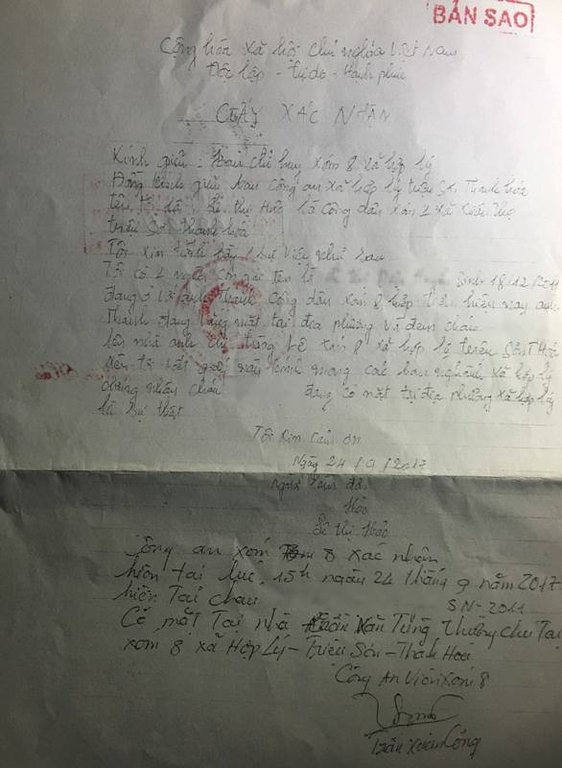 BẢN SAO
Cộng hòa xã hội chủ nghĩa Việt Nam
Độc lập - tự do - Hạnh phúc
GIẤY XÁC NHẬN
Kính gửi: Ban chỉ huy xóm 8 xã hợp lý
Đồng kính gửi ban công an xã hợp lý triệu Sơn Thanh hóa
tên tôi là: Lê thị là Công dân xóm 1 xã Xuân Thọ
triệu Sơn thanh hoá
Tôi xin trình bày sự việc như sau
Tôi có 1 con gái tên là Sinh 18.12/2011
đang ở với anh Thành Công dân xóm 8 hiện nay anh
Thành đang vắng mặt tại địa phương và đem cháu
lên nhà anh xóm 8 xã hợp lý triệu Sơn T Hóa
Nên tôi viết giấy này kính mong các ban nghành xã hợp lý
chứng nhận cháu đang có mặt tại địa phương xã hợp lý
là sự thật
Tôi xin cảm ơn
Ngày 24/9/2017
Người làm đơn
Lê thị
Công an xóm 8 xác nhận
hiện tại lúc 15h ngày 24 tháng 9 năm 2017
hiện Tại cháu SN-2011
Có mặt Tại nhà Văn Tùng Thường chú Tại
xóm 8 xã Hợp Lý - Triệu Sơn - Thanh Hoá
Công An Viên Xóm 8
Trần Công